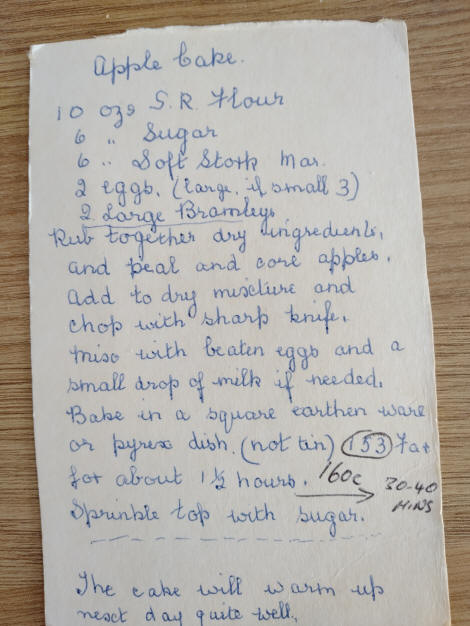 Apple Cake.
10 ozs S.R. Flour
6 " Sugar
6 " Soft Stork Mar.
2 eggs. (large, if small 3)
2 Large Bramleys
Rub together dry ingredients,
and peal and core apples.
Add to dry mixture and
chop with sharp knife.
Mix with beaten eggs and a
small drop of milk if needed.
Bake in a square earthen ware
or pyrex dish. (not tin) 153 Fat
for about 1½ hours. 160c 30-40
MINS
Sprinkle top with sugar.
The cake will warm up
next day quite well,